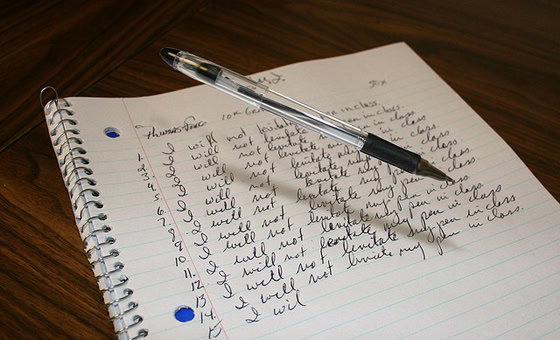 50x
1. I will not levitate in class.
2. I will not levitate my pen in class.
3. I will not levitate my pen in class.
4. I will not levitate my pen in class
5. I will not levitate my pen in class.
6. I will not levitate my pen in class.
7. I will not levitate my pen in class.
8. I will not levitate my pen in class
9. I will not levitate my pen in class
10. I will not levitate my pen in class
11. I will not levitate my pen in class
12. I will not levitate my pen in class.
13. I will not levitate my pen in class.
14. I wil
15